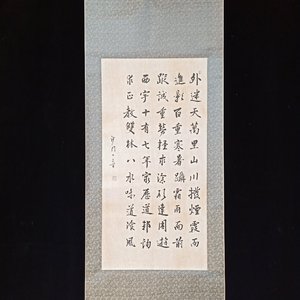 外迷天萬里山川撥煙霞而
進影百重寒暑躡霜雨而前
蹤誠重勞輕求深願達周遊
西宇十有七年窮歷道邦詢
求正教雙林八水味道飡風